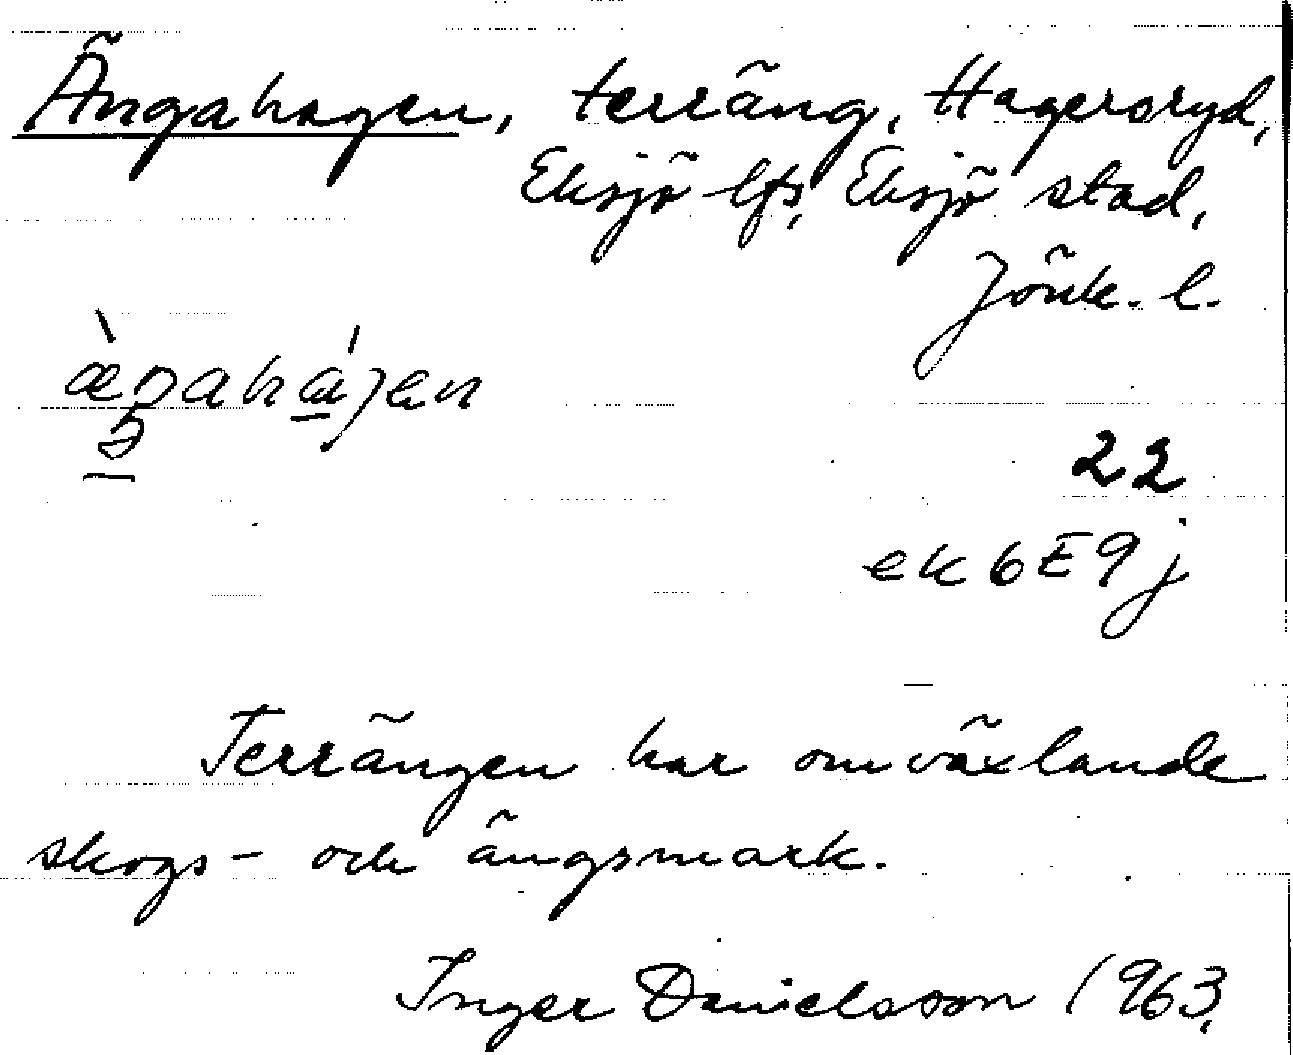 Ängahagen, terräng, Hagersryd,
Eksjö lfs, Eksjö stad,
Jönk. l.
22
ek 6E9j
Terrängen har omväxlande
skogs- och ängsmark.
Inger Danielsson 1963,